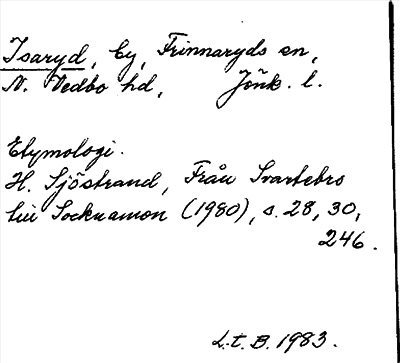 Isaryd, by, Frinnaryds sn,
N. Vedbo hd, Jönk. l.
Etymologi.
H. Sjöstrand, Från Svartebro
till Socknamon (1980), s. 28, 30,
246.
L.t.B. 1983.